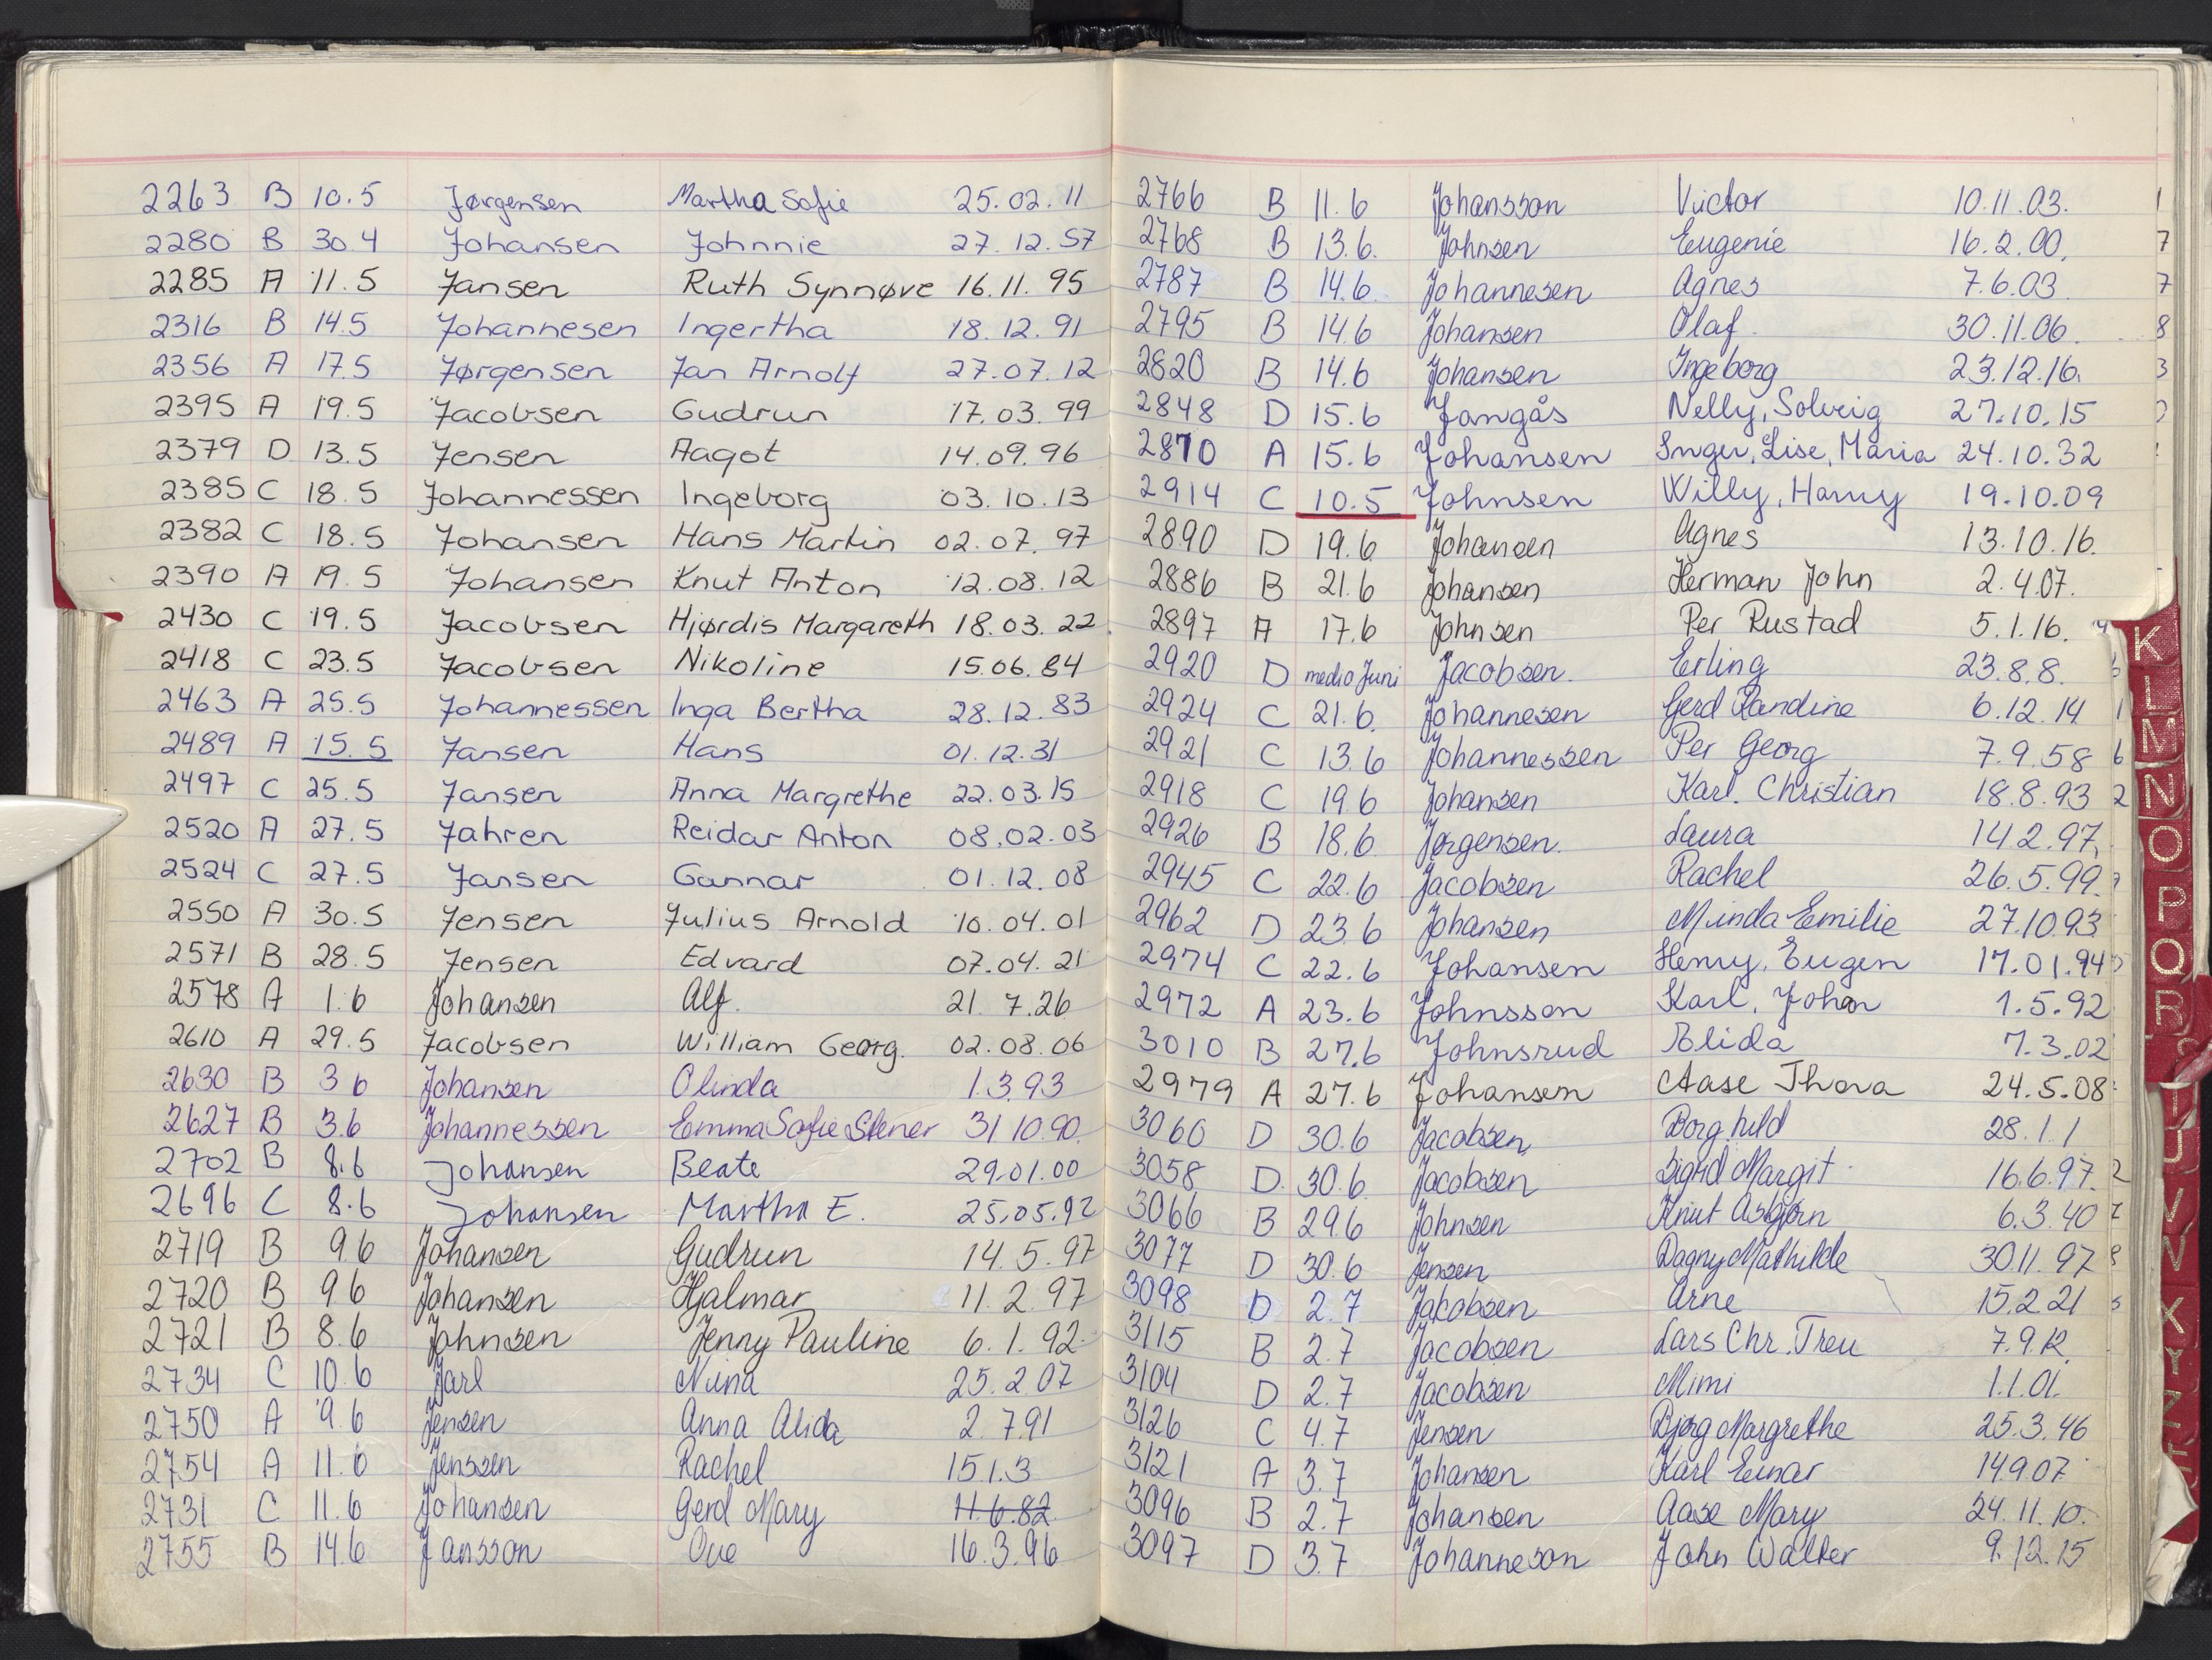 2263 B 10.5 Jørgensen Martha Sofie 25.02.11
2280 B 30.4 Johansen Johnnie 27.12.57
2285 A 11.5 Jansen Ruth Synnøve 16.11.95
2316 B 14.5 Johannesen Ingertha 18.12.91
2356 A 17.5 Jørgensen Jan Arnolf 27.07.12
2395 A 19.5 Jacobsen Gudrun 17.03.99
2379 D 13.5 Jensen Aagot 14.09.96
2385 C 18.5 Johannessen Ingeborg 03.10.13
2382 C 18.5 Johansen Hans Martin 02.07.97
2390 A 19.5 Johansen Knut Anton 12.08.12
2430 C 19.5 Jacobsen Hjørdis Margareth 18.03.22
2418 C 23.5 Jacobsen Nikoline 15.06.84
2463 A 25.5 Johannessen Inga Bertha 28.12.83
2489 A 15.5 Jansen Hans 01.12.31
2497 C 25.5 Jansen Anna Margrethe 22.03.15
2520 A 27.5 Jahren Reidar Anton 08.02.03
2524 C 27.5 Jansen Gunnar 01.12.08
2550 A 30.5 Jensen Julius Arnold 10.04.01
2571 B 28.5 Jensen Edvard 07.04.21
2578 A 1.6 Johansen Alf. 21.7.26
2610 A 29.5 Jacobsen William Georg. 02.08.06
2630 B 3 6 Johansen Olinda 1.3.93
2627 B 3.6 Johannessen Emma Sofie Stener 31 10.90.
2702 B 8.6 Johansen Beate 29.01.00
2696 C 8.6 Johansen Martha E. 25.05.92
2719 B 9.6 Johansen Gudrun 14.5.97
2720 B 9.6 Johansen Hjalmar 11.2.97
2721 B 8.6 Johnsen Jenny Pauline 6.1.92
2734 C 10.6 Jarl Nina 25.2.07
2750 A 9.6 Jensen Anna Alida 2.7.91
2754 A 11.6 Jenssen Rachel 15.1.3
2731 C 11.6 Johansen Gerd Mary 11.6.82
2755 B 14.6 Jansson Ove 16.3.96
2766 B 11.6 Johansson Victor 10.11.03.
2768 B 13.6. Johnsen Eugenie 16.2.00.
2787 B 14.6 Johannesen Agnes 7.6.03
2795 B 14.6 Johansen Olaf 30.11.06.
2820 B 14.6 Johansen Ingeborg 23.12.16.
2848 D 15.6 Jangås Nelly, Solveig 27.10.15
2870 A 15.6 Johansen Inger, Lise, Maria 24.10.32
2914 C 10.5 Johnsen Willy, Harry 19.10.09
2890 D 19.6 Johansen Agnes 13.10.16.
2886 B 21.6 Johansen Herman John 2.4.07.
2897 A 17.6 Johnsen Per Rustad 5.1.16.
2920 D medio Juni Jacobsen. Erling 23.8.8.
2924 C 21.6. Johannesen Gerd Randine 6.12.14
2921 C 13.6 Johannessen Per Georg 7.9.58
2918 C 19.6 Johansen Karl. Christian 18.8.93
2926 B 18.6 Jørgensen. Laura 14.2.97.
2945 C 22.6 Jacobsen Rachel 26.5.99.
2962 D 23.6 Johansen Minda Emilie 27.10.93
2974 C 22.6 Johansen Henry, Eugen 17.01.94
2972 A 23.6 Johnsson Karl, Johan 1.5.92
3010 B 27.6 Johnsrud Elida 7.3.02
2979 A 27.6 Johansen Aase Thora 24.5.08
3060 D 30.6 Jacobsen Borghild 28.1.1
3058 D. 30.6. Jacobsen Sigrid Margit 16.6.97.
3066 B 29.6 Johnsen Knut Asbjørn 6.3.40
3077 D 30.6 Jensen Dagny Mathilde 30.11.97
3098 D 2.7 Jakobsen Arne 15.2.21
3115 B 2.7 Jacobsen Lars Chr. Treu 7.9.12.
3104 D 2.7 Jacobsen Mimi 1.1.01.
3126 C 4.7 Jensen Bjørg Margrethe 25.3.46
3121 A 3.7 Johansen Karl Einar 14.9.07
3096 B 2.7 Johansen Aase Mary 24.11.10.
3097 D 3.7 Johanneson John Walter 9.12.15
K
L
M
N
O
P
Q
R
T
U
V
X
Y
Z